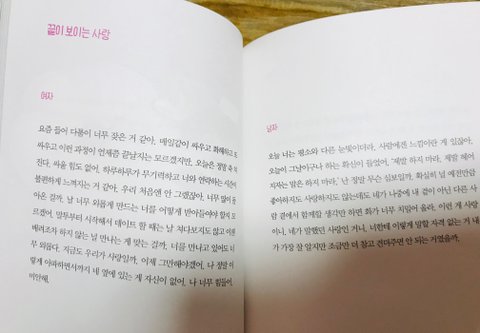 끝이 보이는 사랑
여자
요즘 들어 다툼이 너무 잦은 거 같아. 매일같이 싸우고 화해하고 또
싸우고 이런 과정이 언제쯤 끝날지는 모르겠지만, 오늘은 정말 축
진다. 싸울 힘도 없어. 하루하루가 무기력하고 너와 연락하는 시간이
불편하게 느껴지는 거 같아. 우리 처음엔 안 그랬잖아. 너무
아온 걸까. 날 너무 외롭게 만드는 너를 어떻게 받아들여야 할지 모
르겠어. 말투부터 시작해서 데이트 할 때는 날 쳐다보지도 않고 이젠
배려조차 하지 않는 널 만나는 게 맞는 걸까. 너를 만나고 있어도 너
무 외롭다. 지금도 우리가 사랑일까. 이제 그만해야겠어. 나 정말 이
렇게 아파하면서까지 네 옆에 있는 게 자신이 없어. 나 너무 힘들어.
미안해.
남자
오늘 너는 평소와 다른 눈빛이더라. 사람에겐 느낌이란 게 있잖아.
오늘이 그날이구나 하는 확신이 들었어. '제발 하지 마라, 제발 헤어
지자는 말은 하지 마라.' 난 정말 무슨 심보일까. 확실히 널 예전만큼
좋아하지도 사랑하지도 않는데도 네가 나중에 내 곁이 아닌 다른 사
람 곁에서 함께일 생각만 하면 화가 너무 치밀어 올라. 이런 게 사랑
이니, 네가 말했던 사랑인 거니. 너한테 이렇게 말할 자격 없는 거 내
가 가장 잘 알지만 조금만 더 참고 견뎌주면 안 되는 거였을까.